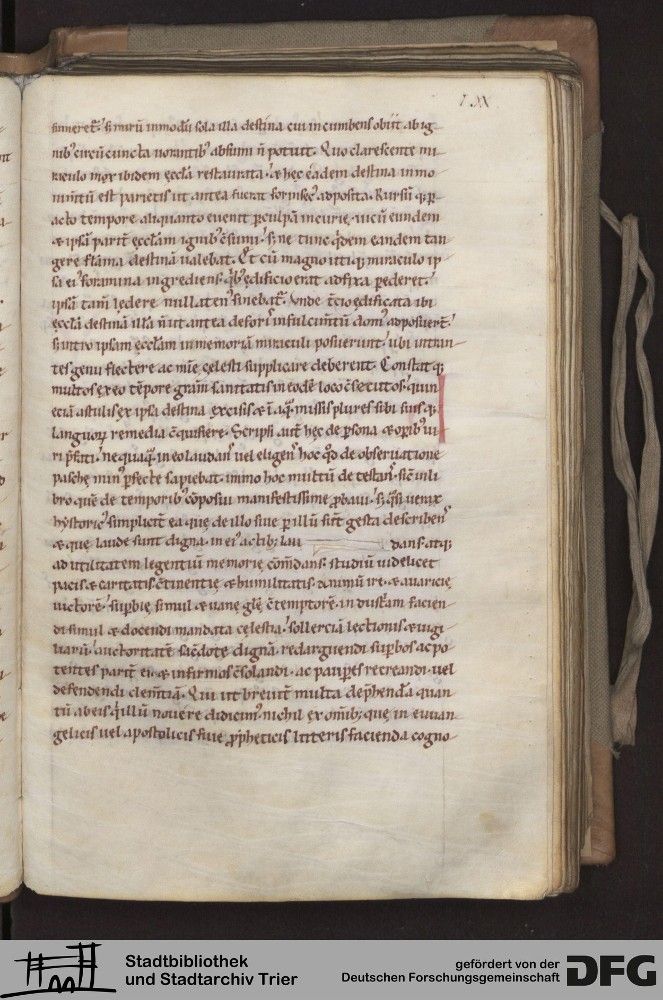 LXX
sumeret̄. s; mirū inmodū sola illa destina cui incumbens obiit ab ig-
nib; circū cuncta uorantib; absumi n̄ potuit. Quo clarescente mi-
raculo mox ibidem ęccła restaurata. & hęc eadem destina in mo
nimtū est parietis ut antea fuerat forinsec; adposita. Rursū q; p-
acto tempore aliquanto euenit p culpā incurię. uicū eundem
& ipsā parit̄ ęcclam ignib; c̄sumi. s; ne tunc q̊dem eandem tan-
gere flāma destinā ualebat. Et cū magno utiq; miraculo ip
sa ei; foramina ingrediens. q̇b; ędificio erat adfixa p̱ederet.
ipsā tam̄ lędere nullaten; sinebat̄. Vnde t̄cio ędificata ibi
ęccła destinā illā n̄ ut antea defori; infulcim̄tū dom; adposuer̄t.
s; intro ipsam ęcclam in memoriā miraculi posuerunt. ubi intran-
tes genu flectere ac mię cęlesti supplicare deberent. Constat q;
multos ex eo tēpore gram̄ sanitatis in eodē loco c̄secutos. quin
eciā astulis ex ipsa destina excisis & ī aq̄ missis plures sibi suisq;
languorꝝ remedia c̄quisiere. Scripsi aut̄ hęc de p̱sona & op̱ib; ui-
ri p̄fati. nequaq̄ in eo laudans uel eligens hoc qd̄ de obseruatione
paschę min; p̱fecte sapiebat. immo hoc multū detestans. sic̄ in li
bro quē de temporib; cōposui manifestissime p̱baui. s; q̄si uerax
hystoric; simplicit̄ ea quę de illo siue p illū sūt gesta describens
& quę laude sunt digna in ei; actib; lau dans. atq;
ad utilitatem legentiū memorię com̄dans. studiū uidelicet
pacis & caritatis. c̄tinentię & humilitatis. animū irę & auaricię
uictorē. sup̱bię simul & uanę glę c̄temptorē. industam facien-
di simul & docendi mandata cęlestia. sollerciā lectionis & uigi
liarū. auctoritatē sac̄dote dignā. redarguendi sup̱bos ac po
tentes parit̄ & infirmos c̄solandi. ac paup̱es recreandi. uel
defendendi clem̄tiā. Qui ut breuit̄ multa dep̱hendā quan
tū ab eis q̇ illū nouere didicim; nichil ex om̄ib; quę in euuan-
gelicis uel apostolicis siue p̱pheticis litteris facienda cogno-
Stadtbibliothek
und Stadtarchiv Trier
gefördert von der
Deutschen Forschungsgemeinschaft
DFG